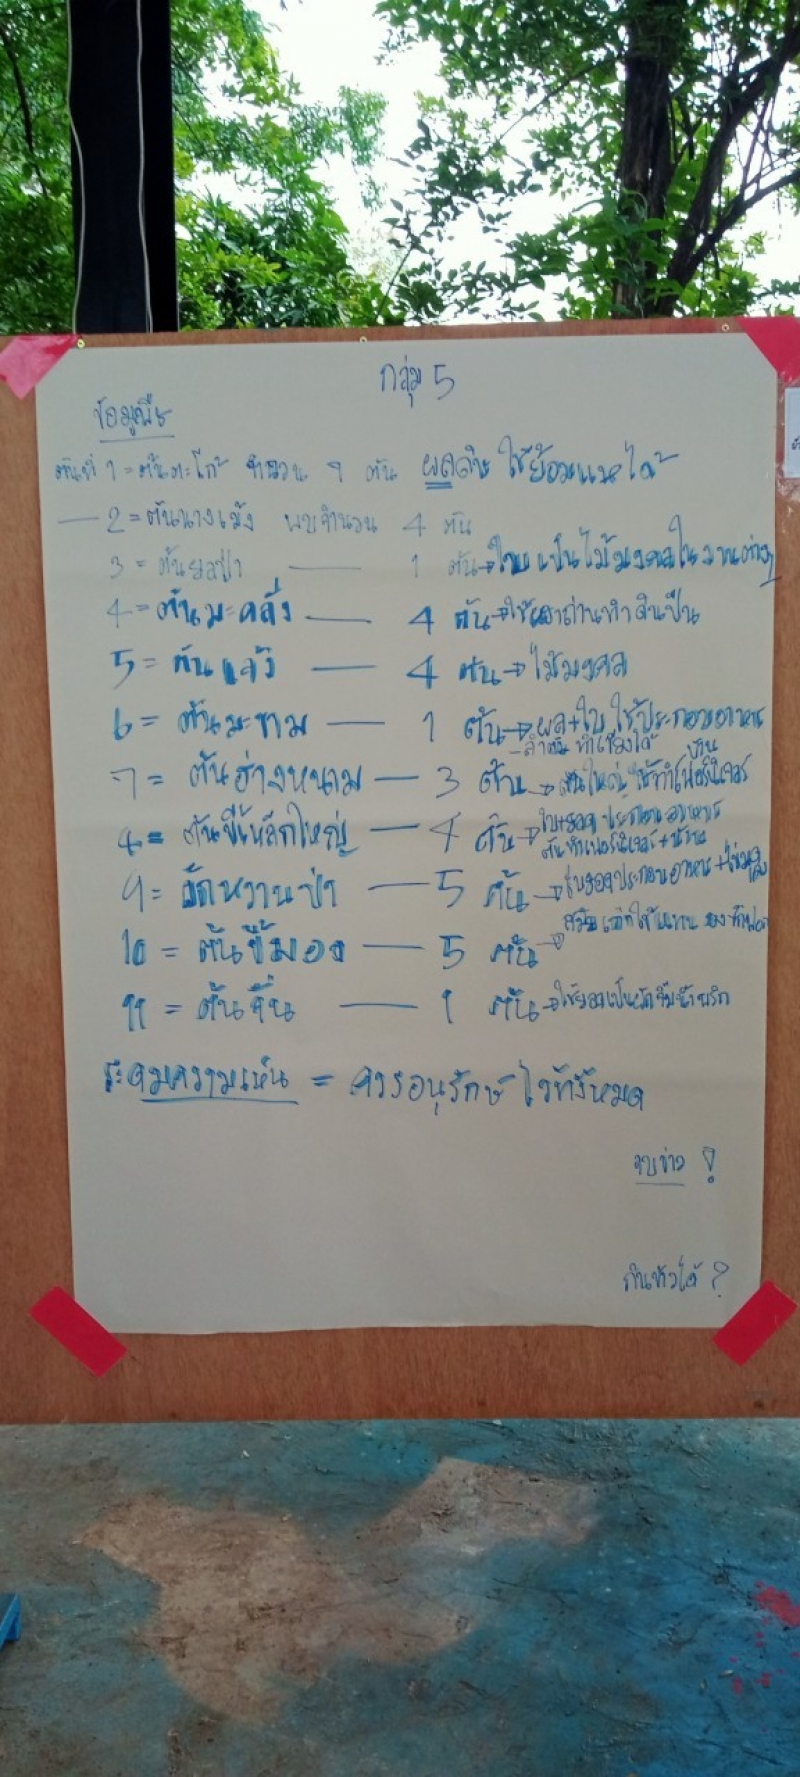 กลุ่ม 5
ข้อมูลพืช
ต้นที่ 1 = ต้นตะโก้ จำนวน 9 ต้น ผลดิบ ใช้ย้อมแหได้
— 2 = ต้นนางแม้ง พบจำนวน 4 ต้น
3 = ต้นยอป่า — 1 ต้น → ใบ เป็นไม้มงคลในงานต่างๆ
4 = ต้นมะคลึ่ง — 4 ต้น → ใช้เผาถ่านทำดินปืน
5 = ต้นแจ้ง — 4 ต้น → ไม้มงคล
6 = ต้นมะขาม — 1 ต้น → ผล+ใบ ใช้ประกอบอาหาร
- ลำต้น ทำเขียงได้
7 = ต้นฮ่างหนาม — 3 ต้น → ต้นใหญ่ใช้ทำเฟอร์นิเจอร์ บ้าน
8 = ต้นขี้เหล็กใหญ่ — 4 ต้น → ใบ+ยอด ประกอบอาหาร
ต้นทำเฟอร์นิเจอร์+บ้าน
9 = ผักหวานป่า — 5 ต้น → ใบยอดประกอบอาหาร +ไข่มดแดง
10 = ต้นขี้มอง — 5 ต้น → ใช้แทน ผงซักฟอก
11 = ต้นจิ่น — 1 ต้น → ใช้ยอดเป็นผักจิ้มน้ำพริก
ระดมความเห็น = ควรอนุรักษ์ ไว้ทั้งหมด
จบข่าว !
กินข้าวได้ ?